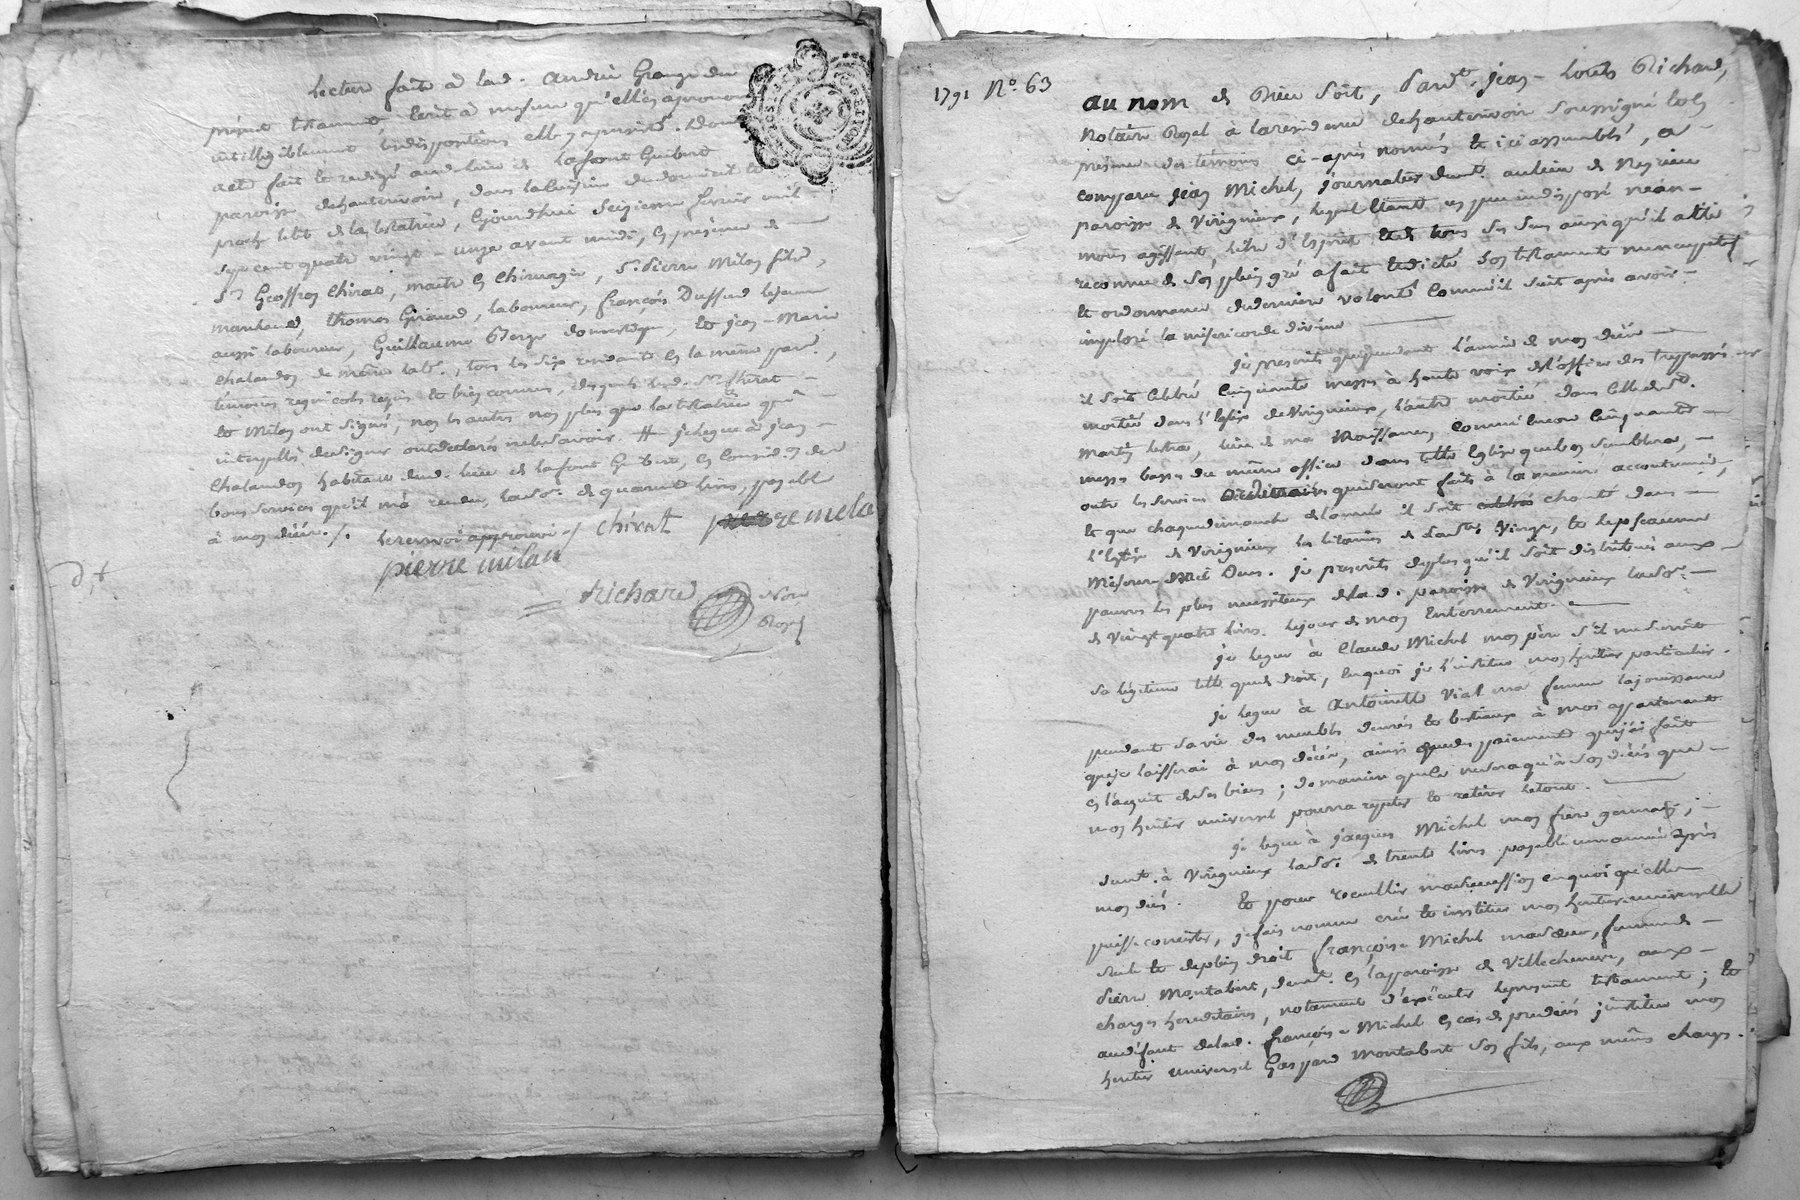 Lecture faite a lad. andrée Grange du
présent testament, écrit à mesure qu'elle a prononcé
intelligiblement ses dispositions elle y a persisté. Dont
acte fait et redigé au lieu de lafont Guibert
paroisse dehauterivoir, dans la cuisine du domicile et
proche le lit de la testatrice, cejourdhui seizieme fevrier mil
sept cent quatre vingt-onze avant midi, en présence de
Sr. Geoffroy Chirat, maitre en chirurgie, Sr. Pierre Milan fils,
marchand, thomas Giraud, laboureur, françois Dussud lejeune
aussi laboureur, Guillaume Berge domestique, et jean-Marie
Chalandon de même lab., tous les six residants en la même par.,
témoins regnicoles requis et bien connus, desquels lesd. Srs. Chirat
et Milan ont signé, non les autres non plus que la testatrice qui
interpellés de signer ont déclarés ne le savoir. # je legue à jean
Chalandon habitant aud. lieu de lafont Guibert, en consid.on des
bons services qu'il m'a rendu, la so. de quarante livres, payable
à mon décés. /. le renvoi approuvé / chirat pierre mela
pierre milan
Richard Nore
Royal
1791 No. 63
au nom de Dieu soit, Pardt. jean-Louis Richard,
Notaire Royal a la residence dehauterivoir soussigné et en
présence des témoins ci-après nommés et ici assemblés, a
comparu jean Michel, journalier demt. au lieu de Neyrieu
paroisse de Virigneux, lequel étant un peu indisposé néan-
moins agissant, libre d'esprit et de tous ses sens ainsi qu'il a été
reconnu, de son plein gré a fait et dicté son testament nuncupatif
et ordonnance de derniere volonté comme il suit après avoir
imploré la misericorde divine
je prescrits que pendant l'année de mon décés
il soit célébré cinquante messes à haute voix de l'office des trépassés
moitié dans l'Eglise de Virigneux, l'autre moitié dans celle de St.
Martin lestra, lieu de ma Naissance, comme encore cinquante
messes basses du même office dans telle Eglise que bon semblera,
outre les services ordinaires qui seront faits à la maniere accoutumée,
et que chaque dimanche de l'année il soit chanté dans
l'Eglise de Virigneux les litanies de la Ste. Vierge, et le pseaume
Miserere mei Deus. je prescrits de plus qu'il soit distribué aux
pauvres les plus necessiteux de lad. paroisse de Virigneux la so.
de vingt quatre livres le jour de mon Enterrement.
je legue à Claude Michel mon père s'il me survit
sa légitime telle que de droit, en quoi je l'institue mon heritier particulier.
je legue à Antoinette Vial ma femme la jouissance
pendant sa vie des meubles denrés et bestiaux à moi appartenants
que je laisserai à mon décés, ainsi que des paiements que j'ai fait
en l'acquit de ses biens; de maniere que ce ne sera qu'à son décés que
mon heritier universel pourra repeter et retirer le tout.
je legue à jacques Michel mon frere germain,
demt. à Virigneux la so. de trente livres payable une année après
mon décés. Et pour recueillir ma succession en quoi qu'elle
puisse consister, je fais nomme crée et institue mon heritiere universelle
seule et de plein droit françoise Michel ma soeur, femme de
Pierre Montabert, demt. en la paroisse de Villechenève, aux
charges hereditaires, notament d'exécuter le présent testament; et
au défaut de lad. françoise Michel en cas de prédécés j'institue mon
heritier universel Gaspard Montabert son fils, aux mêmes charges.